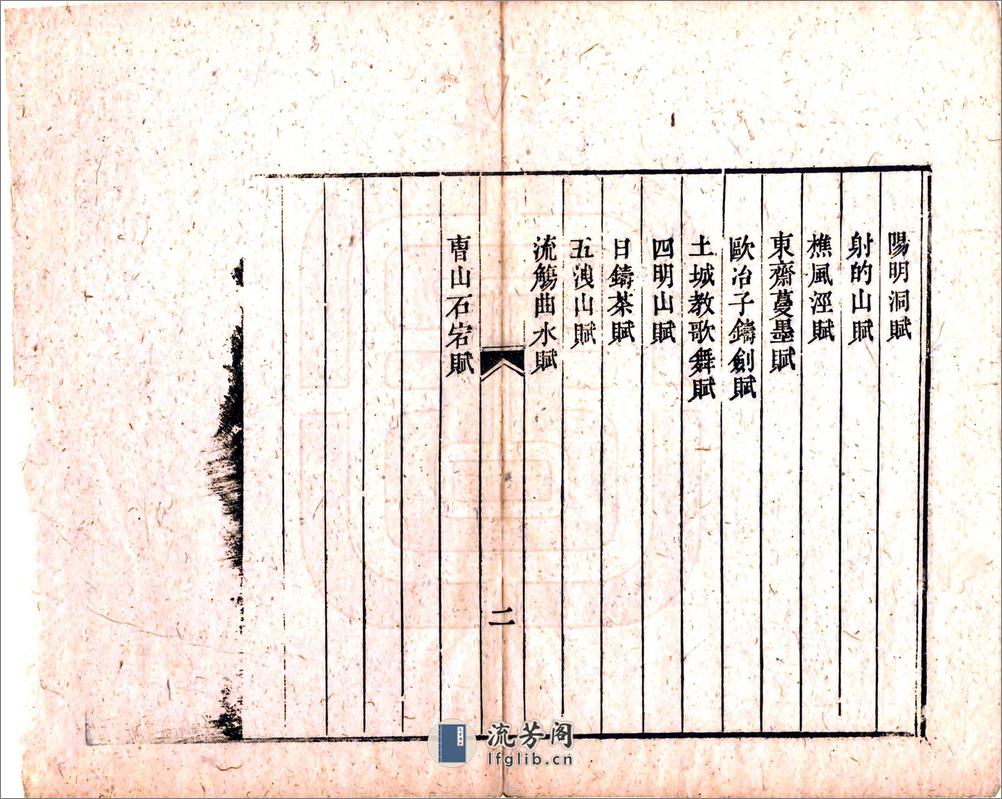 陽明洞賦
射的山賦
樵風涇賦
東齋蔓墨賦
歐冶子鑄劍賦
土城教歌舞賦
四明山賦
日鑄茶賦
五洩山賦
流觴曲水賦
二
曹山石宕賦
流芳阁
lfglib.cn